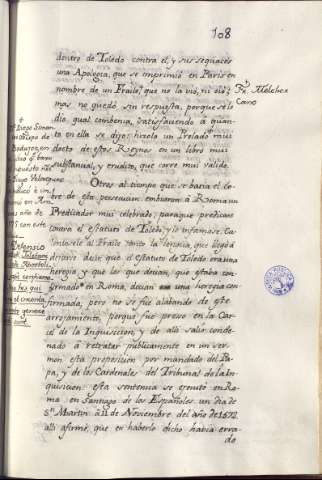 108
dentro de Toledo contra el, y sus sequaces
una Apologia, que se imprimiò en Paris en
nombre de un Fraile, que no la viò, ni oiò;
mas no quedò sin respuesta, porque se lo
dio qual combenia, satisfaciendo à quan-
to en ella se dijo; hizolo un Prelado mui
docto de estos Reynos en un libro mui
substancial, y erudito, que corre mui valido.
Otrosi al tiempo que se hacia el
de esta persecucion embiaron à Roma un
Predicador mui celebrado, para que predicase
contra el estatuto de Toledo, y lo infamase.
al Fraile tanto la licencia, que llegò à
decir que el Estatuto de Toledo era una
heregia y que los que decian, que estaba con-
firmado en Roma, decian una heregia con-
firmada, pero no se fue alabando de este
arrojamiento, porque fue preso en la Car-
cel de la Inquisicion, y de allì saliò conde-
nado à retratar publicamente en un ser-
mon esta proposicion por mandado del Pa-
pa, y de los Cardenales del Tribunal de la In-
quisicion: esta sentencia se executò en Ro-
ma en Santiago de los Españoles un dia de
Sn. Martin à 11 de Noviembre del año de 1572.
alli afirmò, que en haberlo dicho habia erra-
do
Fr. Melchor
Cano
Diego Simon
Obispo de
Badajoz, en
Velazquez
año de
con este